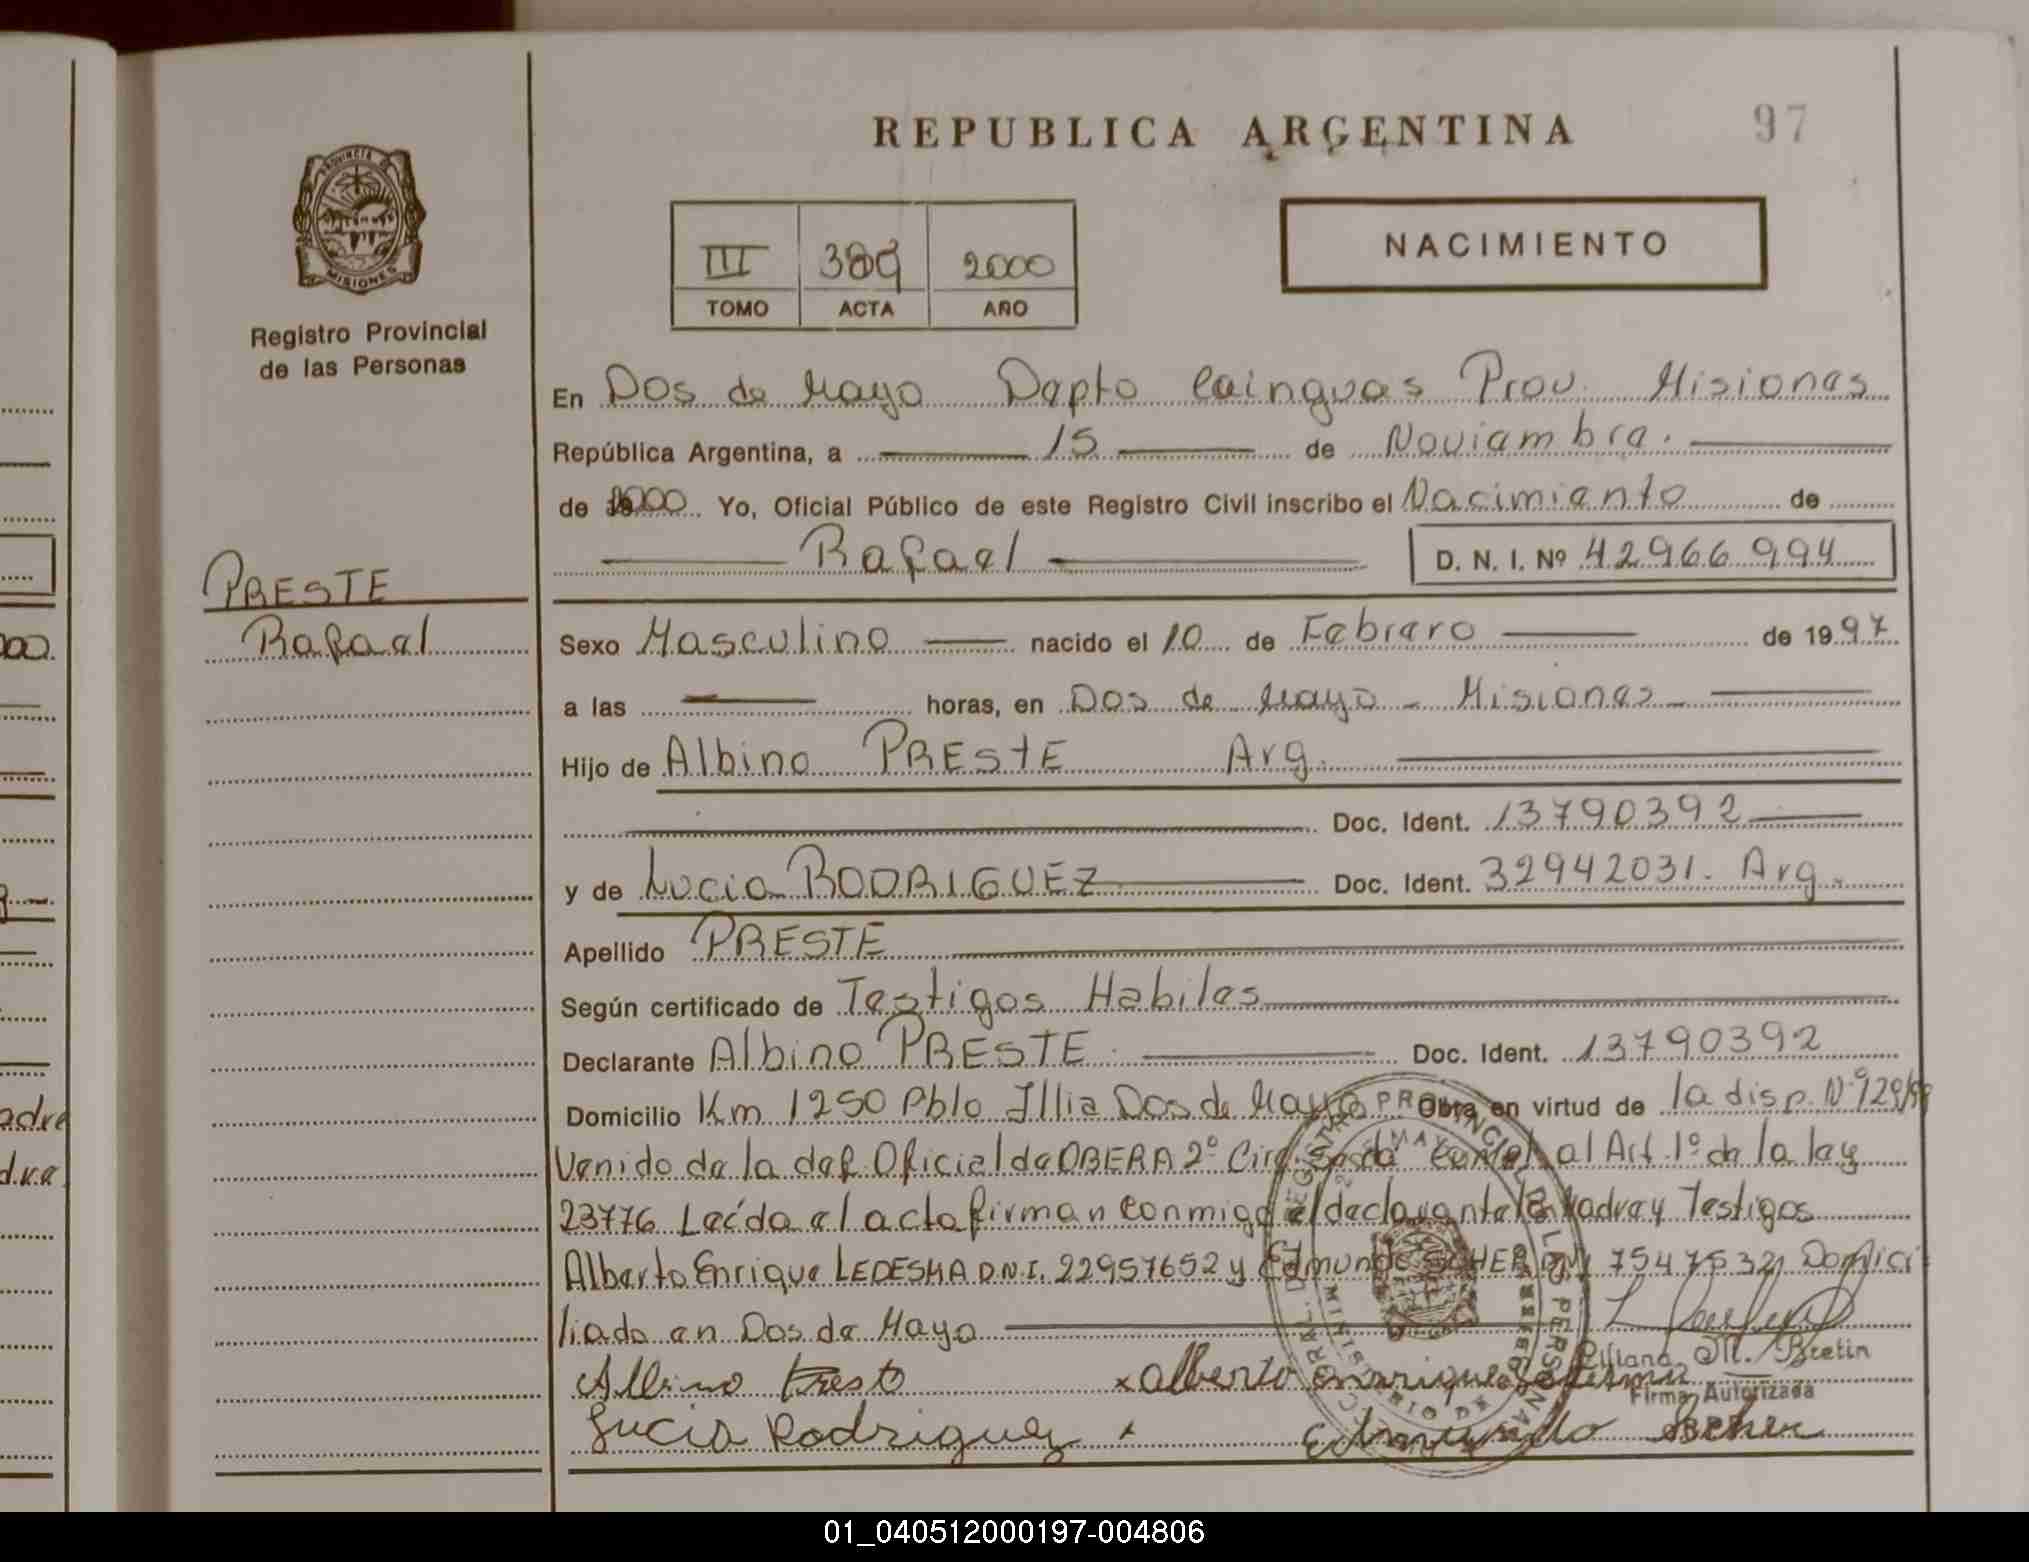 REPUBLICA ARGENTINA
97
PROVINCIA DE
MISIONES
Registro Provincial
de las Personas
III 389 2000
TOMO ACTA AÑO
NACIMIENTO
En Dos de Mayo Depto Cainguas Prov. Misiones
República Argentina, a 15 de Noviembre.
de 2000. Yo, Oficial Público de este Registro Civil inscribo el Nacimiento de
Rafael D. N. I. Nº 42966994
PRESTE
Rafael
Sexo Masculino nacido el 10 de Febrero de 1997
a las horas, en Dos de Mayo - Misiones
Hijo de Albino PRESTE Arg.
Doc. Ident. 13790392
y de Lucia RODRIGUEZ Doc. Ident. 32942031. Arg.
Apellido PRESTE
Según certificado de Testigos Habiles
Declarante Albino PRESTE Doc. Ident. 13790392
Domicilio Km 1250 Pblo Illia Dos de Mayo Obra en virtud de la disp. Nº 129/99
Venido de la def. Oficial de OBERA 2º Circ. al Art. 1º de la ley
23776 Leída el acta firman conmigo el declarante la Madre y Testigos
Alberto Enrique LEDESMA D.N.I. 22957652 y Edmundo SCHER DNI 7547532 Domici
liado en Dos de Mayo
Albino Preste x Alberto Enrique Ledesma
Liliana M. Bretin
Firma Autorizada
Lucia Rodriguez x Edmundo Scher
01_040512000197-004806